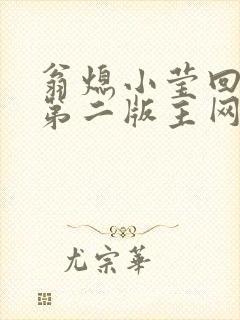 翁熄小莹回
第二版主网
尤宗华